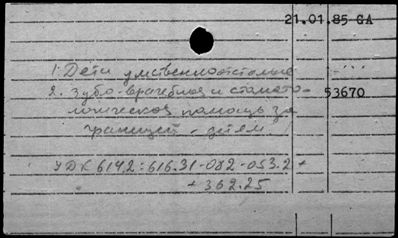 21.01.85 GA
1. Дети умственноотсталые
2. Зубо-врачебная и стомато-
53670
логическая помощь за
границей - детям
УДК 614.2:616.31-082-053.2 +
+ 362.25